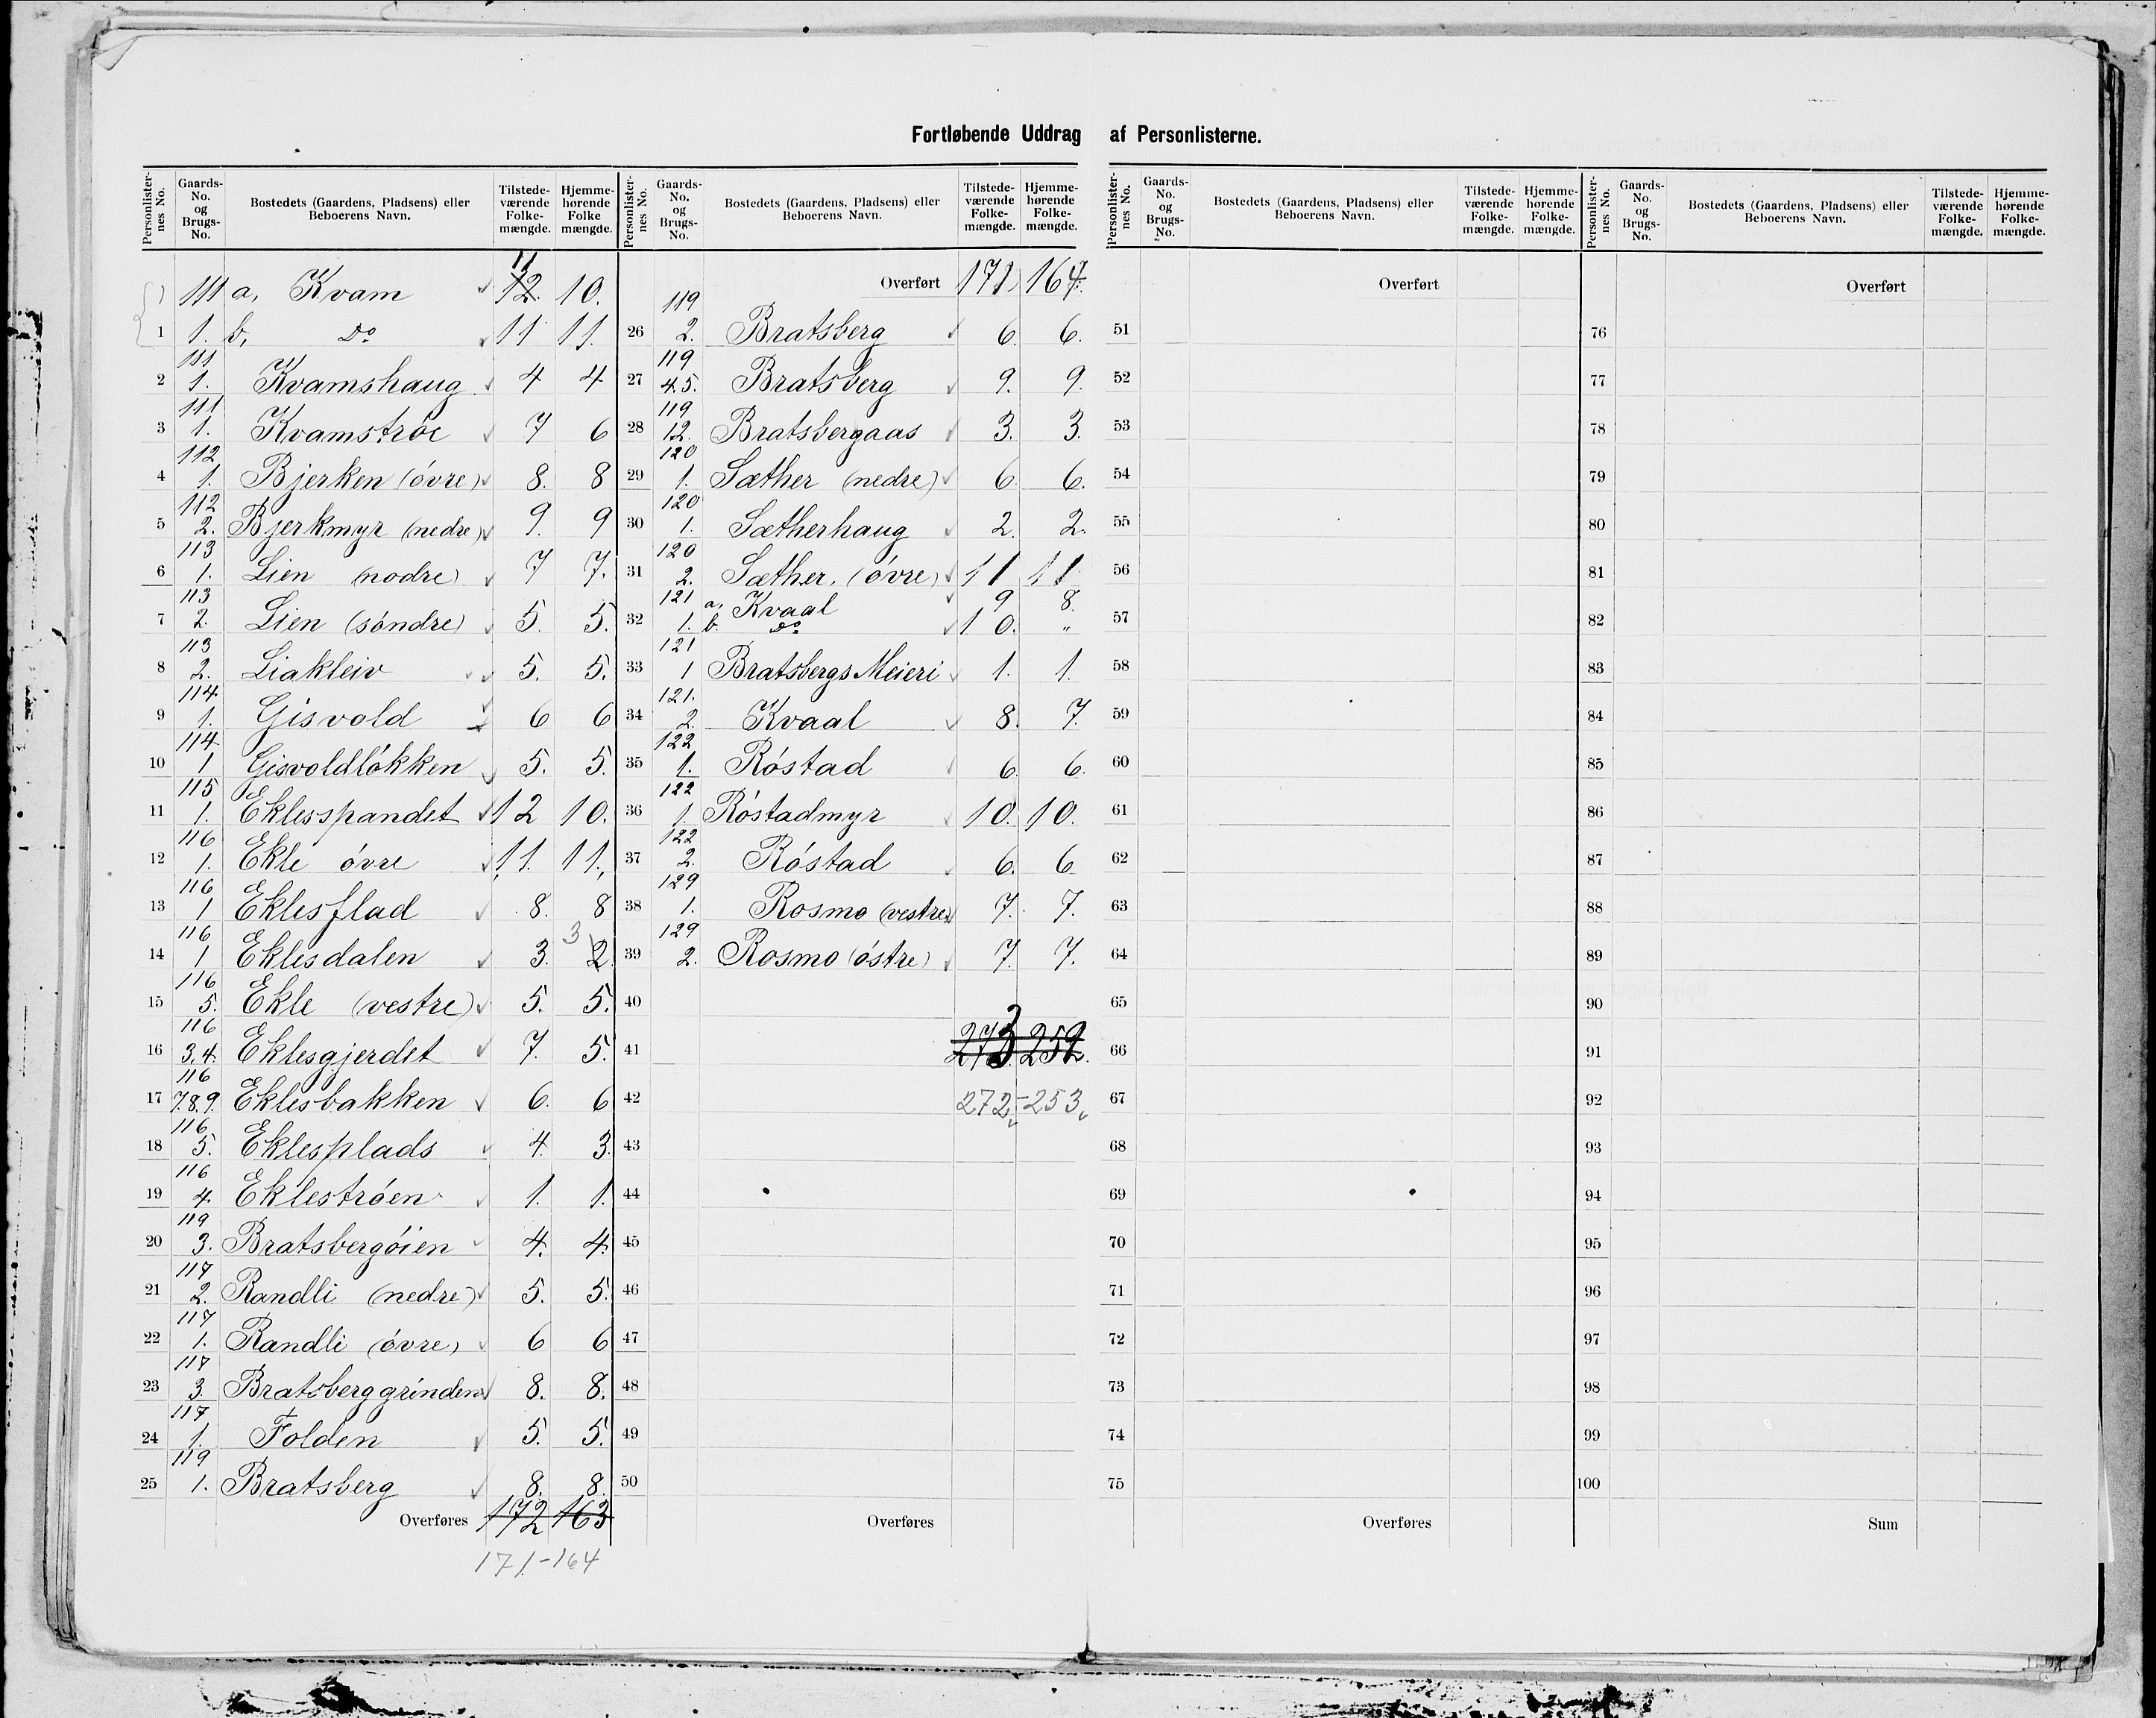 Fortløbende Uddrag af Personlisterne.
Personlister-nes No. | Gaards-No. og Brugs-No. | Bostedets (Gaardens, Pladsens) eller Beboerens Navn. | Tilstede-værende Folke-mængde. | Hjemme-hørende Folke mængde.
111 a, Kvam 12. 11 10.
1 1. b, Do 11 11.
2 111 1. Kvamshaug 4 4
3 111 1. Kvamstrøe 7 6
4 112 1. Bjerken (óvre) 8. 8
5 112 2. Bjerkmyr (nedre) 9. 9
6 113 1. Lien (nodre) 7 7.
7 113 2. Lien (sóndre) 5. 5.
8 113 2. Liakleiv 5. 5.
9 114 1. Gisvold 6 6
10 114 1 Gisvoldlókken 5. 5.
11 115 1. Eklesspandet 12 10.
12 116 1. Ekle óvre 11. 11,
13 116 1 Eklesflad 8. 8
14 116 1 Eklesdalen 3. 3 2.
15 116 5. Ekle (vestre) 5. 5.
16 116 3,4. Eklesgjerdet 7. 5.
17 116 7.8.9. Eklesbakken 6. 6
18 116 5. Eklesplads 4. 3.
19 116 4. Eklestróen 1. 1.
20 119 3. Bratsbergóien 4. 4.
21 117 2. Randli (nedre) 5. 5.
22 117 1. Randli (óvre) 6 6
23 117 3. Bratsberggrinden 8. 8.
24 117 1. Folden 5. 5.
25 119 1. Bratsberg 8. 8.
Overføres 172 163
171-164
Personlister-nes No. | Gaards-No. og Brugs-No. | Bostedets (Gaardens, Pladsens) eller Beboerens Navn. | Tilstede-værende Folke-mængde. | Hjemme-hørende Folke-mængde.
Overført 171 164.
26 119 2. Bratsberg 6. 6.
27 119 4.5. Bratsberg 9. 9.
28 119 12. Bratsbergaas 3. 3.
29 120 1. Sæther (nedre) 6. 6.
30 120 1. Sætherhaug 2. 2.
31 120 2. Sæther, (óvre) 11 11
32 121 a, Kvaal 9 8.
1. b. Do 10. "
33 121 1 Bratsbergs Meieri 1. 1.
34 121. 2. Kvaal 8. 7.
35 122 1. Róstad 6. 6.
36 122 1. Róstadmyr 10. 10.
37 122 2. Róstad 6. 6
38 129 1. Rosmo (vestre) 7. 7.
39 129 2. Rosmo (óstre) 7. 7.
40
41 273 252.
42 272-253
43
44
45
46
47
48
49
50
Overføres
Personlister-nes No. | Gaards-No. og Brugs-No. | Bostedets (Gaardens, Pladsens) eller Beboerens Navn. | Tilstede-værende Folke-mængde. | Hjemme-hørende Folke-mængde.
Overført
51
52
53
54
55
56
57
58
59
60
61
62
63
64
65
66
67
68
69
70
71
72
73
74
75
Overføres
Personlister-nes No. | Gaards-No. og Brugs-No. | Bostedets (Gaardens, Pladsens) eller Beboerens Navn. | Tilstede-værende Folke-mængde. | Hjemme-hørende Folke-mængde.
Overført
76
77
78
79
80
81
82
83
84
85
86
87
88
89
90
91
92
93
94
95
96
97
98
99
100
Sum